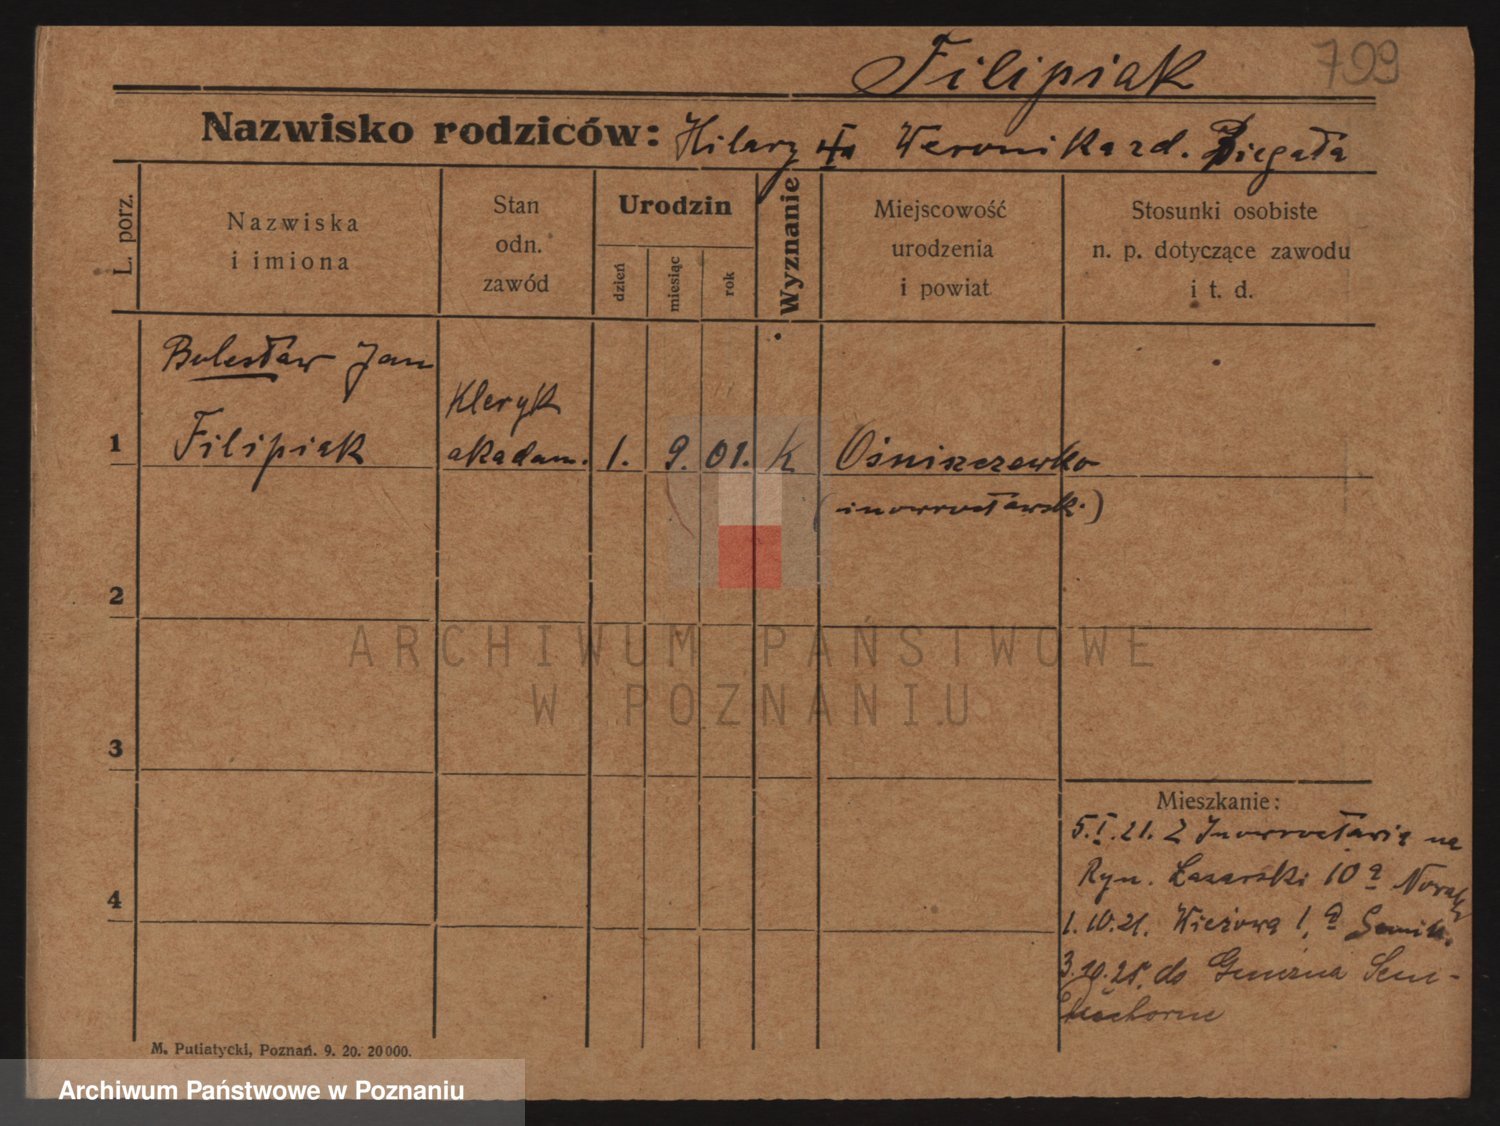 Filipiak 799
Nazwisko rodziców: Hilary i Weronika zd. Biegała
L. porz.
Nazwiska
i imiona
Stan
odn.
zawód
Urodzin
dzień
miesiąc
rok
Wyznanie
Miejscowość
urodzenia
i powiat
Stosunki osobiste
n. p. dotyczące zawodu
i t. d.
Bolesław Jan
Kleryk
1 Filipiak akadem. 1. 9. 01. k Ośniszczewko
(inowrocławski)
2
3
4
Mieszkanie:
5.I.21. Z Inowrocławia na
Ryn. Łazarski 10a
1.10.21. Wieżowa 1, a Semin.
3.10.25. do Gniezna Sem-
Duchowne
M. Putiatycki, Poznań. 9. 20. 20 000.
ARCHIWUM PAŃSTWOWE
W POZNANIU
Archiwum Państwowe w Poznaniu